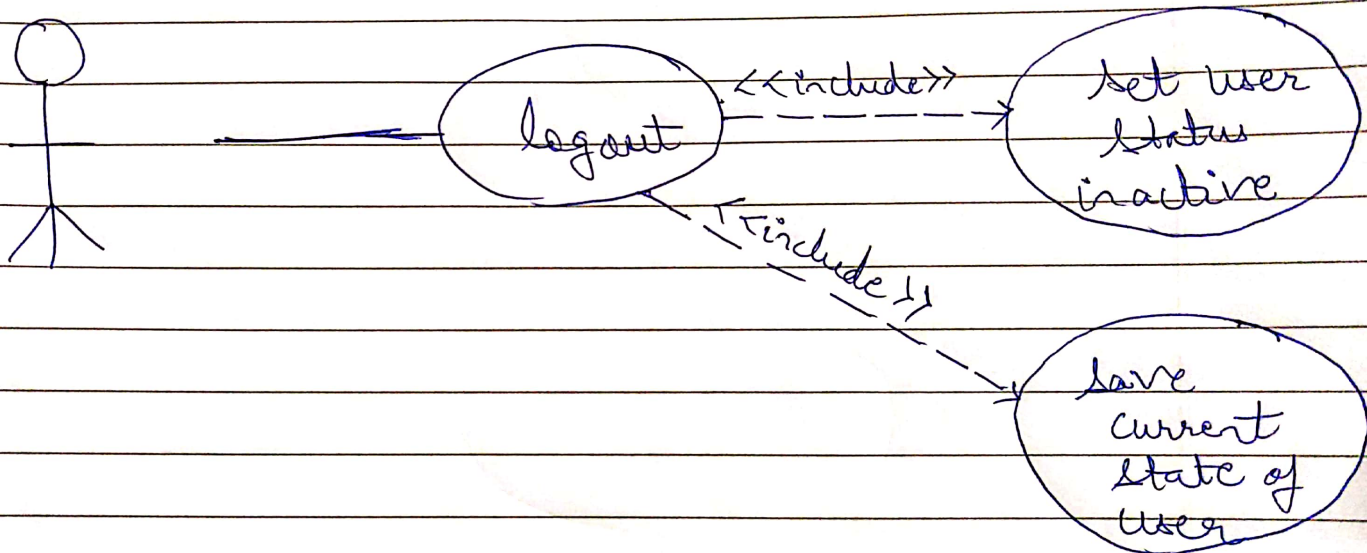 logout
<<include>>
set user
status
inactive
<<include>>
save
current
state of
user